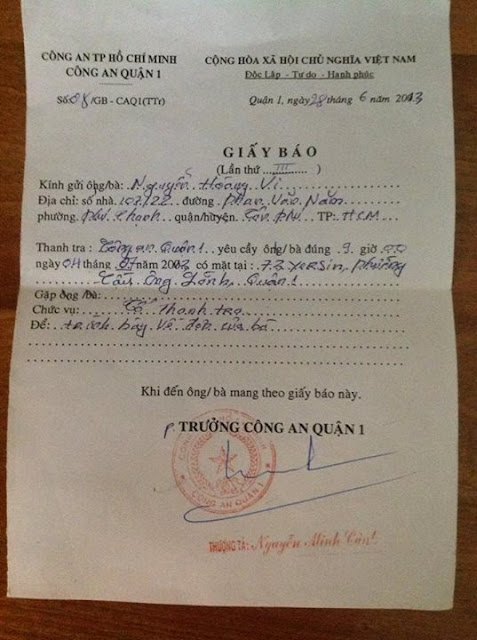 CÔNG AN TP HỒ CHÍ MINH
CÔNG AN QUẬN 1
CỘNG HÒA XÃ HỘI CHỦ NGHĨA VIỆT NAM
Độc Lập - Tự do - Hạnh phúc
Số: 08/GB - CAQ1(TTr)
Quận 1, ngày 28 tháng 6 năm 2013
GIẤY BÁO
(Lần thứ III)
Kính gửi ông/bà: Nguyễn Hoàng Vi
Địa chỉ: số nhà 107/22 đường Phan Văn Năm
phường Phú Thạnh quận/huyện Tân Phú TP: HCM
Thanh tra: Công an Quận 1 yêu cầy ông/bà đúng 9 giờ 00
ngày 04 tháng 07 năm 2013 có mặt tại: 73 Yersin, Phường
Cầu Ông Lãnh, Quận 1
Gặp ông/Bà:
Chức vụ: Thanh tra
Để: trình bày về đơn của bà
Khi đến ông/ bà mang theo giấy báo này.
P. TRƯỞNG CÔNG AN QUẬN 1
CÔNG AN QUẬN 1
THƯỢNG TÁ: Nguyễn Minh